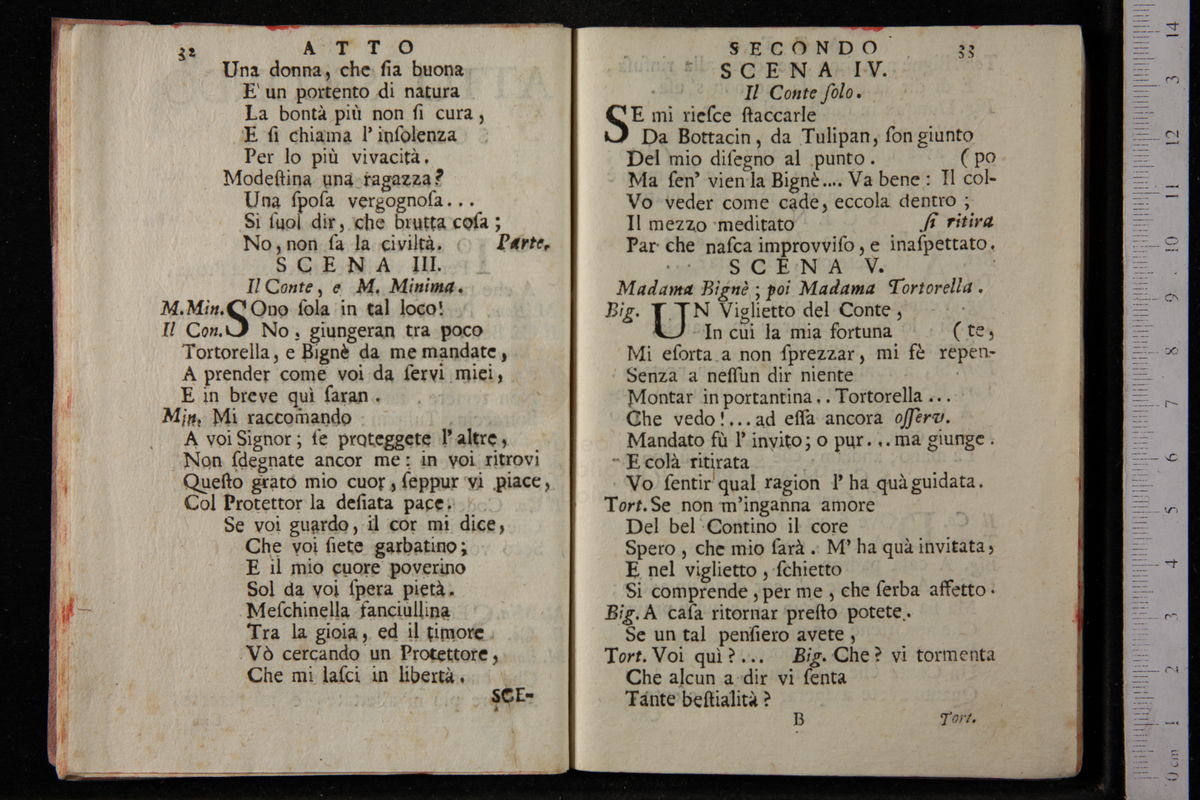 32 ATTO
Una donna, che ſia buona
E' un portento di natura
La bontà più non ſi cura,
E ſi chiama l' inſolenza
Per lo più vivacità.
Modeſtina una ragazza?
Una ſpoſa vergognoſa...
Si ſuol dir, che brutta coſa;
No, non ſa la civiltà. Parte.
SCENA III.
Il Conte, e M. Minima.
M.Min. SOno ſola in tal loco!
Il Con. No, giungeran tra poco
Tortorella, e Bignè da me mandate,
A prender come voi da ſervi miei,
E in breve quì ſaran.
Min. Mi raccomando
A voi Signor; ſe proteggete l' altre,
Non ſdegnate ancor me: in voi ritrovi
Queſto grato mio cuor, ſeppur vi piace,
Col Protettor la deſiata pace.
Se voi guardo, il cor mi dice,
Che voi ſiete garbatino;
E il mio cuore poverino
Sol da voi ſpera pietà.
Meſchinella fanciullina
Tra la gioia, ed il timore
Vò cercando un Protettore,
Che mi laſci in libertà.
SCE-
SECONDO 33
SCENA IV.
Il Conte ſolo.
SE mi rieſce ſtaccarle
Da Bottacin, da Tulipan, ſon giunto
Del mio diſegno al punto. (po
Ma ſen' vien la Bignè.... Va bene: Il col-
Vo veder come cade, eccola dentro;
Il mezzo meditato ſi ritira
Par che naſca improvviſo, e inaſpettato.
SCENA V.
Madama Bignè; poi Madama Tortorella.
Big. UN Viglietto del Conte,
In cui la mia fortuna (te,
Mi eſorta a non ſprezzar, mi fè repen-
Senza a neſſun dir niente
Montar in portantina.. Tortorella...
Che vedo!... ad eſſa ancora oſſerv.
Mandato fù l' invito; o pur... ma giunge.
E colà ritirata
Vo ſentir qual ragion l' ha quà guidata.
Tort. Se non m'inganna amore
Del bel Contino il core
Spero, che mio ſarà. M' ha quà invitata,
E nel viglietto, ſchietto
Si comprende, per me, che ſerba affetto.
Big. A caſa ritornar preſto potete.
Se un tal penſiero avete,
Tort. Voi quì?... Big. Che? vi tormenta
Che alcun a dir vi ſenta
Tante beſtialità?
B Tort.
0 cm 1 2 3 4 5 6 7 8 9 10 11 12 13 14